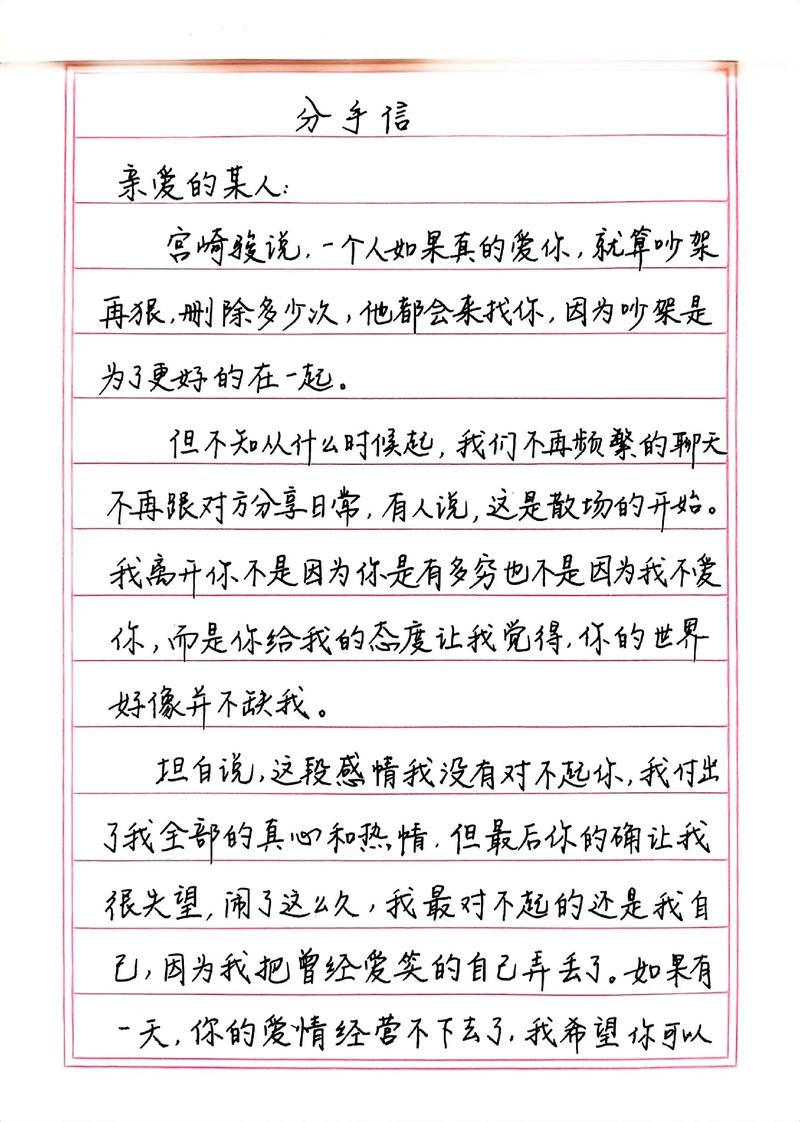 分手信
亲爱的某人:
宫崎骏说,一个人如果真的爱你,就算吵架
再狠,删除多少次,他都会来找你,因为吵架是
为了更好的在一起。
但不知从什么时候起,我们不再频繁的聊天
不再跟对方分享日常,有人说,这是散场的开始。
我离开你不是因为你是有多穷也不是因为我不爱
你,而是你给我的态度让我觉得,你的世界
好像并不缺我。
坦白说,这段感情我没有对不起你,我付出
了我全部的真心和热情,但最后你的确让我
很失望,闹了这么久,我最对不起的还是我自
己,因为我把曾经爱笑的自己弄丢了。如果有
一天,你的爱情经营不下去了,我希望你可以